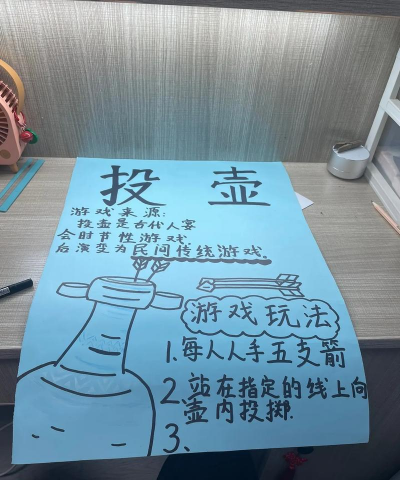 投壶
游戏来源:
投壶是古代人宴
会时节性游戏,
后演变为民间传统游戏.
游戏玩法
1.每人人手五支箭
2、站在指定的线上向
壶内投掷.
3、